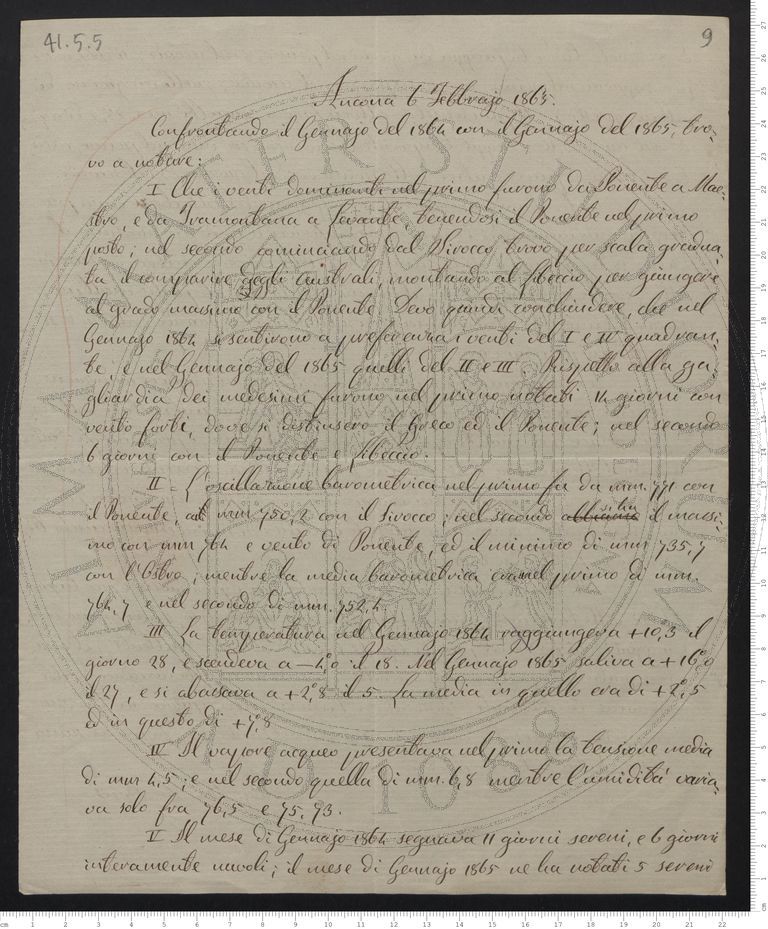 41.5.5
9
Ancona 6 Febbrajo 1865.
Confrontando il Gennajo del 1864 con il Gennajo del 1865, tro-
vo a notare:
I Che i venti dominanti nel primo furono da Ponente a Mae-
stro, e da Tramontana a Levante, tenendosi il Ponente nel primo
posto; nel secondo cominciando dal Sirocco trovo per scala gradua-
ta il comparire degli australi, montando al libeccio per giungere
al grado massimo con il Ponente. Devo quindi conchiudere, che nel
Gennajo 1864 si sentirono a preferenza i venti del I e IV quadran-
te, e nel Gennajo del 1865 quelli del II e III. Rispetto alla ga-
gliardia dei medesimi furono nel primo notati 14 giorni con
vento forti, dove si distinsero il Greco ed il Ponente; nel secondo
6 giorni con il Ponente e libeccio.
II = L'oscillazione barometrica nel primo fu da mm. 771 con
il Ponente, a mm 750,2 con il Sirocco; nel secondo si ha il massi-
mo con mm 764 e vento di Ponente, ed il minimo di mm 735,7
con l'Ostro; mentre la media barometrica era nel primo di mm.
764,7 e nel secondo di mm. 752,4.
III La temperatura nel Gennajo 1864 raggiungeva +10°,3 il
giorno 28, e scendeva a -4°,0 il 18. Nel Gennajo 1865 saliva a +16°,0
il 27, e si abassava a +2°,8 il 5. La media in quello era di +2°,5
ed in questo di +7°,8
IV Il vapore acqueo presentava nel primo la tensione media
di mm 4,5; e nel secondo quella di mm. 6,8 mentre l'umiditá varia-
va solo fra 76,5 e 75,93.
V Il mese di Gennajo 1864 segnava 11 giorni sereni, e 6 giorni
interamente nuvoli; il mese di Gennajo 1865 ne ha notati 5 sereni